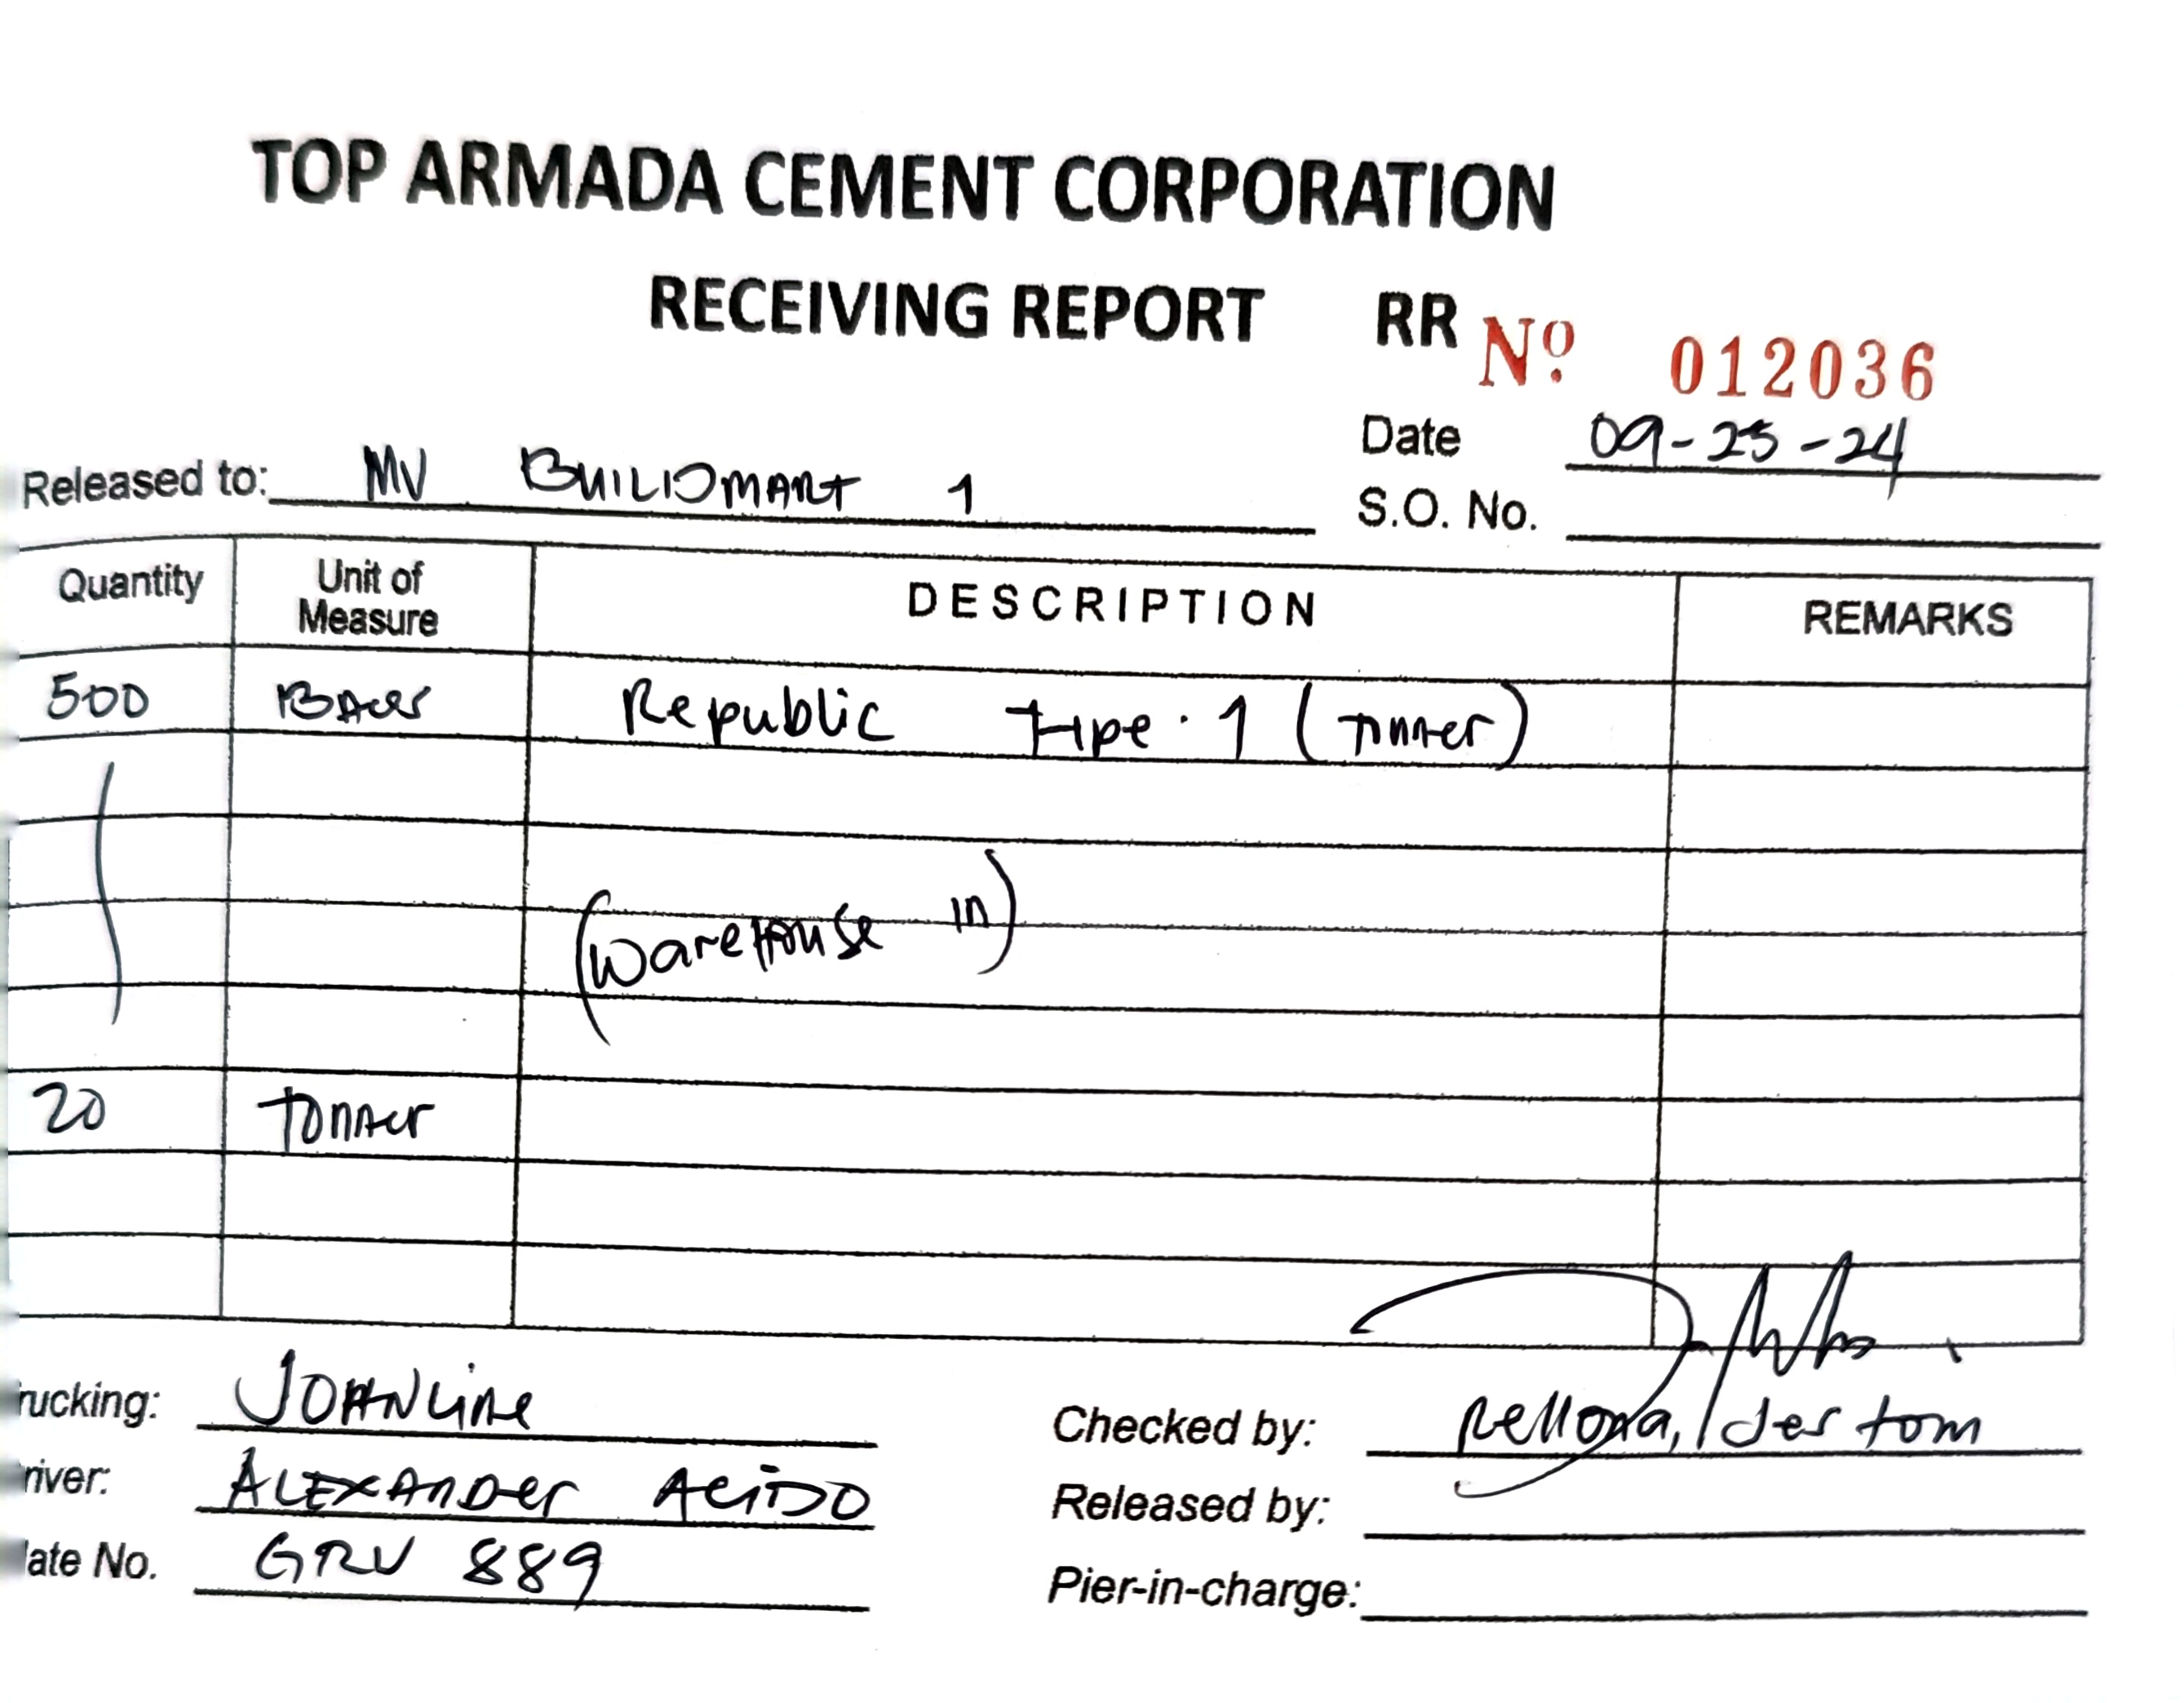 TOP ARMADA CEMENT CORPORATION
RECEIVING REPORT RR Nº 012036
Date 09-25-24
Released to: MV BUILDMART 1
S.O. No.
Quantity Unit of Measure DESCRIPTION REMARKS
500 BAGS Republic type 1 (Tonner)
(Warehouse in)
20 Tonner
rucking: JOHNLINE
river: ALEXANDER ACIDO
late No. GRV 889
Checked by: tom
Released by:
Pier-in-charge: